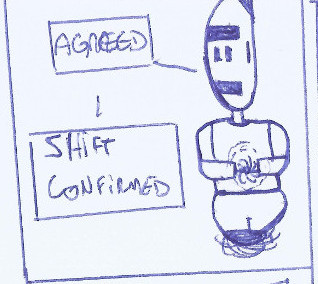 AGREED
SHIFT
CONFIRMED